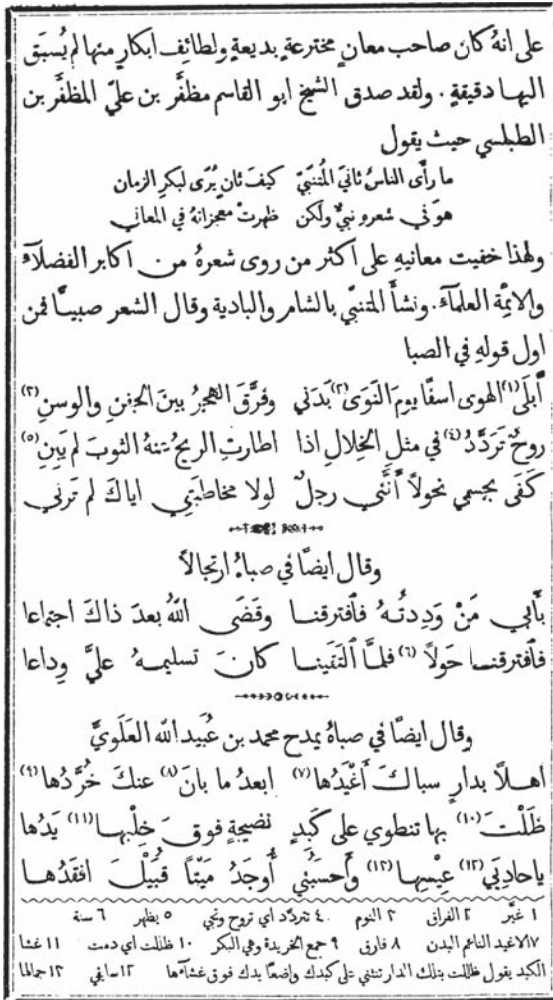 على انهُ كان صاحب معانٍ مخترعةٍ بديعةٍ ولطائف ابكارٍ منها لم يُسبَق
اليها دقيقةٍ . ولقد صدق الشيخ ابو القاسم مظفَّر بن عليّ المظفَّر بن
الطبلسي حيث يقول
ما رأَى الناسُ ثانيَ المُتنبّي كيفَ ثانٍ يُرَى لبكرِ الزمان
هو في شعره نبيٌّ ولكن ظهرتْ معجزاتهُ في المعاني
ولهذا خفيت معانيهِ على اكثر من روى شعرهُ من اكابر الفضلآء
والايمَّة العلمآء. ونشأَ المتنبّي بالشام والبادية وقال الشعر صبيًّا فمن
اول قولهِ في الصبا
أَبلَى(١) الهوى اسفًا يومَ النَوَى(٢) بَدَني وفرَّقَ الهجرُ بينَ الجفنِ والوسنِ(٣)
روحٌ تَرَدَّدُ(٤) في مثلِ الخِلالِ اذا اطارتِ الريحُ عنهُ الثوبَ لم يَبِنِ(٥)
كَفَى بجسمي نحولًا أَنَّني رجلٌ لولا مخاطبَتِي اياكَ لم تَرَني
وقال ايضًا في صباهُ ارتجالًا
بأَبي مَنْ وَدِدتُـهُ فافترقنـا وقَضَى اللهُ بعدَ ذاكَ اجتماعا
فافترقنـا حَولًا(٦) فلمَّا التَقَينـا كانَ تسليمـهُ عليَّ وِداعا
وقال ايضًا في صباهُ يمدح محمد بن عُبيد الله العَلَويَّ
اهـلًا بدارٍ سباكَ أَغْيَدُها(٧) ابعدُ ما بانَ(٨) عنكَ خُرَّدُها(٩)
ظَلْتَ(١٠) بها تنطوي على كَبِدٍ نضيجةٍ فوقَ خِلْبِها(١١) يَدُها
يا حادِيَيْ(١٢) عِيْسِها(١٣) وأَحسَبُني أُوجَدُ مَيْتًا قُبَيْلَ افقَدُها
١ غيَّر ٢ الفراق ٣ النوم ٤ تتردّد اي تروح وتجي ٥ يظهر ٦ سنة
٧ الاغيد الناعم البدن ٨ فارق ٩ جمع الخريدة وهي البكر ١٠ ظللت اي دمت ١١ غشا
الكبد يقول ظللت بتلك الدار تنثني على كبدك واضعًا يدك فوق غشآءها ١٢ سايقي ١٣ جمالها